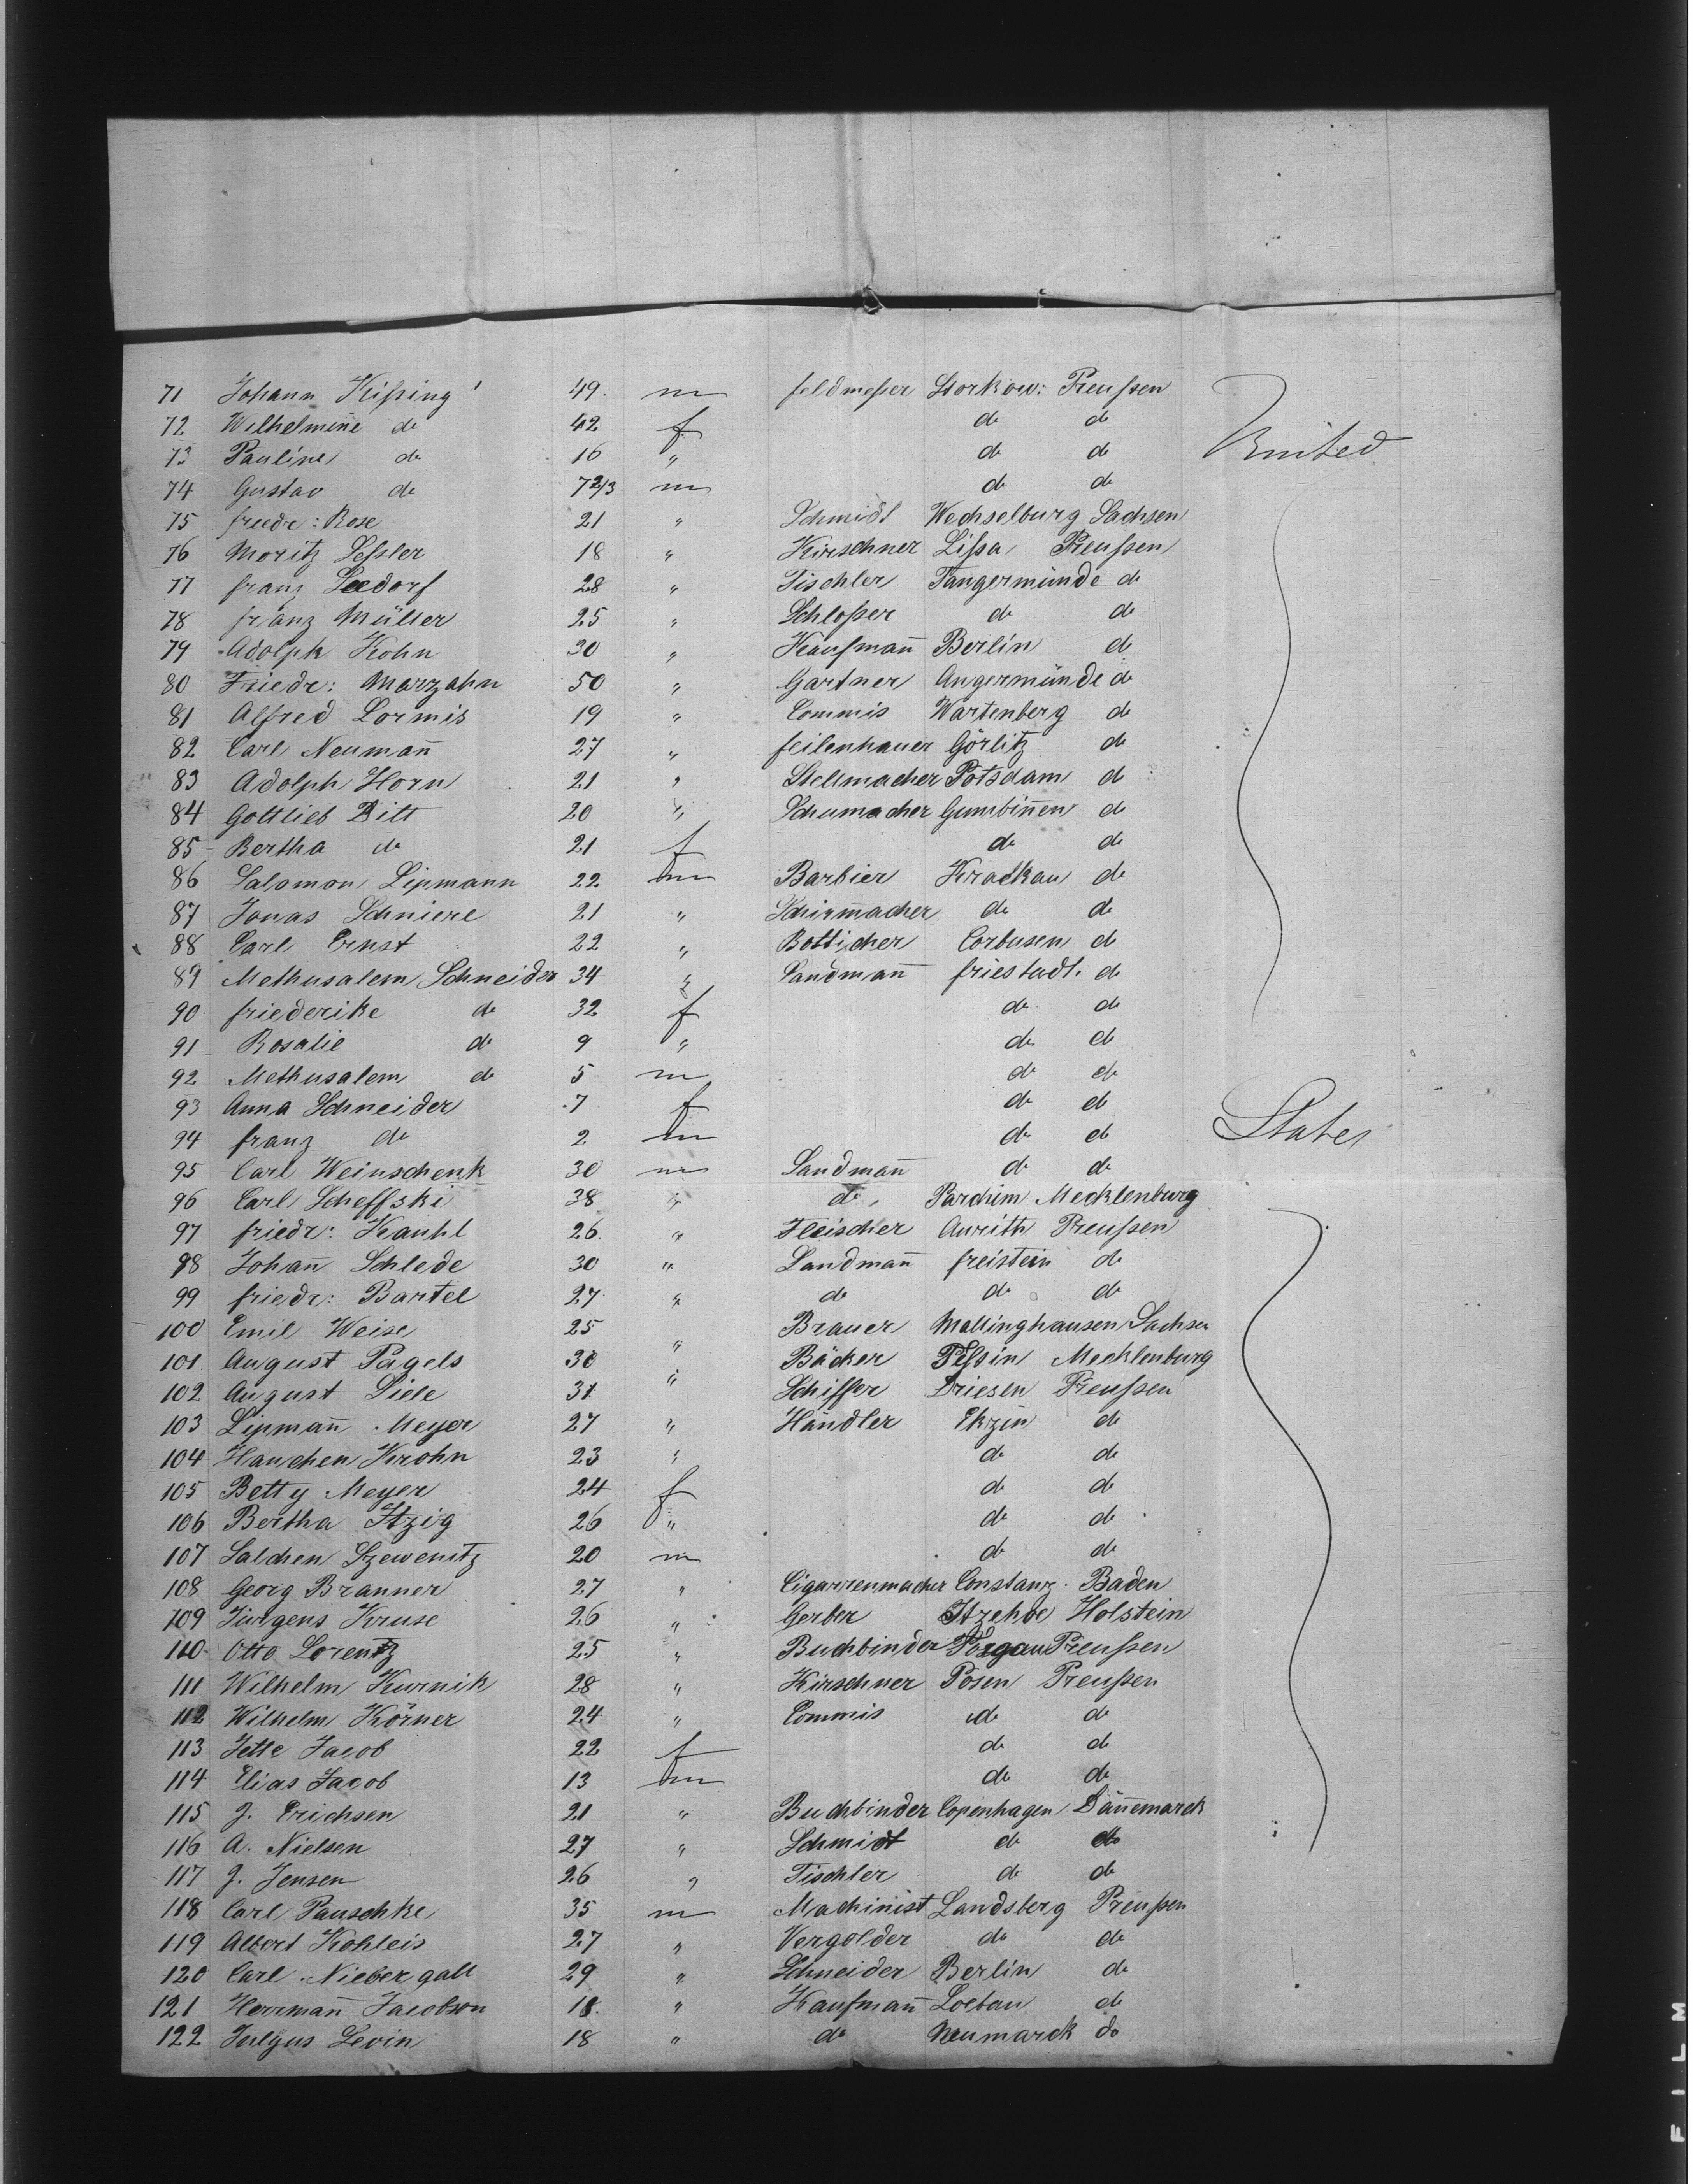 71 Johann Kißing 49. m feldmeßer Storkow: Preußen
72 Wilhelmine do 42 f do do United
73 Pauline do 16 " do do
74 Gustav do 7 2/3 m do do
75 friedr: Rose 21 " Schmidt Wechselburg Sachsen
76 Moritz Leßler 18 " Kirschner Lißa Preußen
77 franz Seedorf 28 " Tischler Tangermünde do
78 franz Müller 25 " Schloßer do do
79 Adolph Kohn 30 " Kaufmañ Berlin do
80 Friedr: Marzahn 50 " Gartner Angermünde do
81 Alfred Lormis 19 " Commis Wartenberg do
82 Carl Neumañ 27 " feilenhauer Görlitz do
83 Adolph Horn 21 " Stellmacher Potsdam do
84 Gottlieb Ditt 20 " Schumacher Gumbiñen do
85 Bertha do 21 f do do
86 Salomon Lipmann 22 m Barbier Krackau do
87 Jonas Schniere 21 " Schirmacher do do
88 Carl Ernst 22 " Botticher Corbusen do
89 Methusalem Schneider 34 " Landmañ friestadt. do
90 friederike do 32 f do do
91 Rosalie do 9 " do do
92 Methusalem do 5 m do do
93 Anna Schneider 7 f do do
94 franz do 2 m do do States
95 Carl Weinschenk 30 m Landmañ do do
96 Carl Scheffski 38 " do Parchim Mecklenburg
97 friedr: Kauhl 26. " Fleischer Aurith Preußen
98 Johañ Schlede 30 " Landmañ freistein do
99 friedr: Bartel 27 " do do do
100 Emil Weise 25 " Brauer Mallinghausen Sachsen
101 August Pagels 30 " Bäcker Teßin Mecklenburg
102 August Piele 31 " Schiffer Driesen Preußen
103 Lipmañ Meyer 27 " Händler Ekzin do
104 Hanchen Krohn 23 " do do
105 Betty Meyer 24 f do do
106 Bertha Itzig 26 " do do
107 Salchen Szewenitz 20 m do do
108 Georg Branner 27 " Cigarrenmacher Constanz Baden
109 Jürgens Kruse 26 " Gerber Itzehoe Holstein
110 Otto Lorentz 25 " Buchbinder Torgau Preußen
111 Wilhelm Kurnik 28 " Kirschner Posen Preußen
112 Wilhelm Körner 24 " Commis do do
113 Jette Jacob 22 f do do
114 Elias Jacob 13 m do do
115 J. Erichsen 21 " Buchbinder Copenhagen Däñemarck
116 A. Nielsen 27 " Schmidt do do
117 J. Jensen 26 " Tischler do do
118 Carl Pauschke 35 m Machinist Landsberg Preußen
119 Albert Kohleis 27 " Vergolder do do
120 Carl Niebergall 29 " Schneider Berlin do
121 Herrmañ Jacobson 18. " Kaufmañ Loebau do
122 Julyus Levin 18 " do Neumarck do
FILM